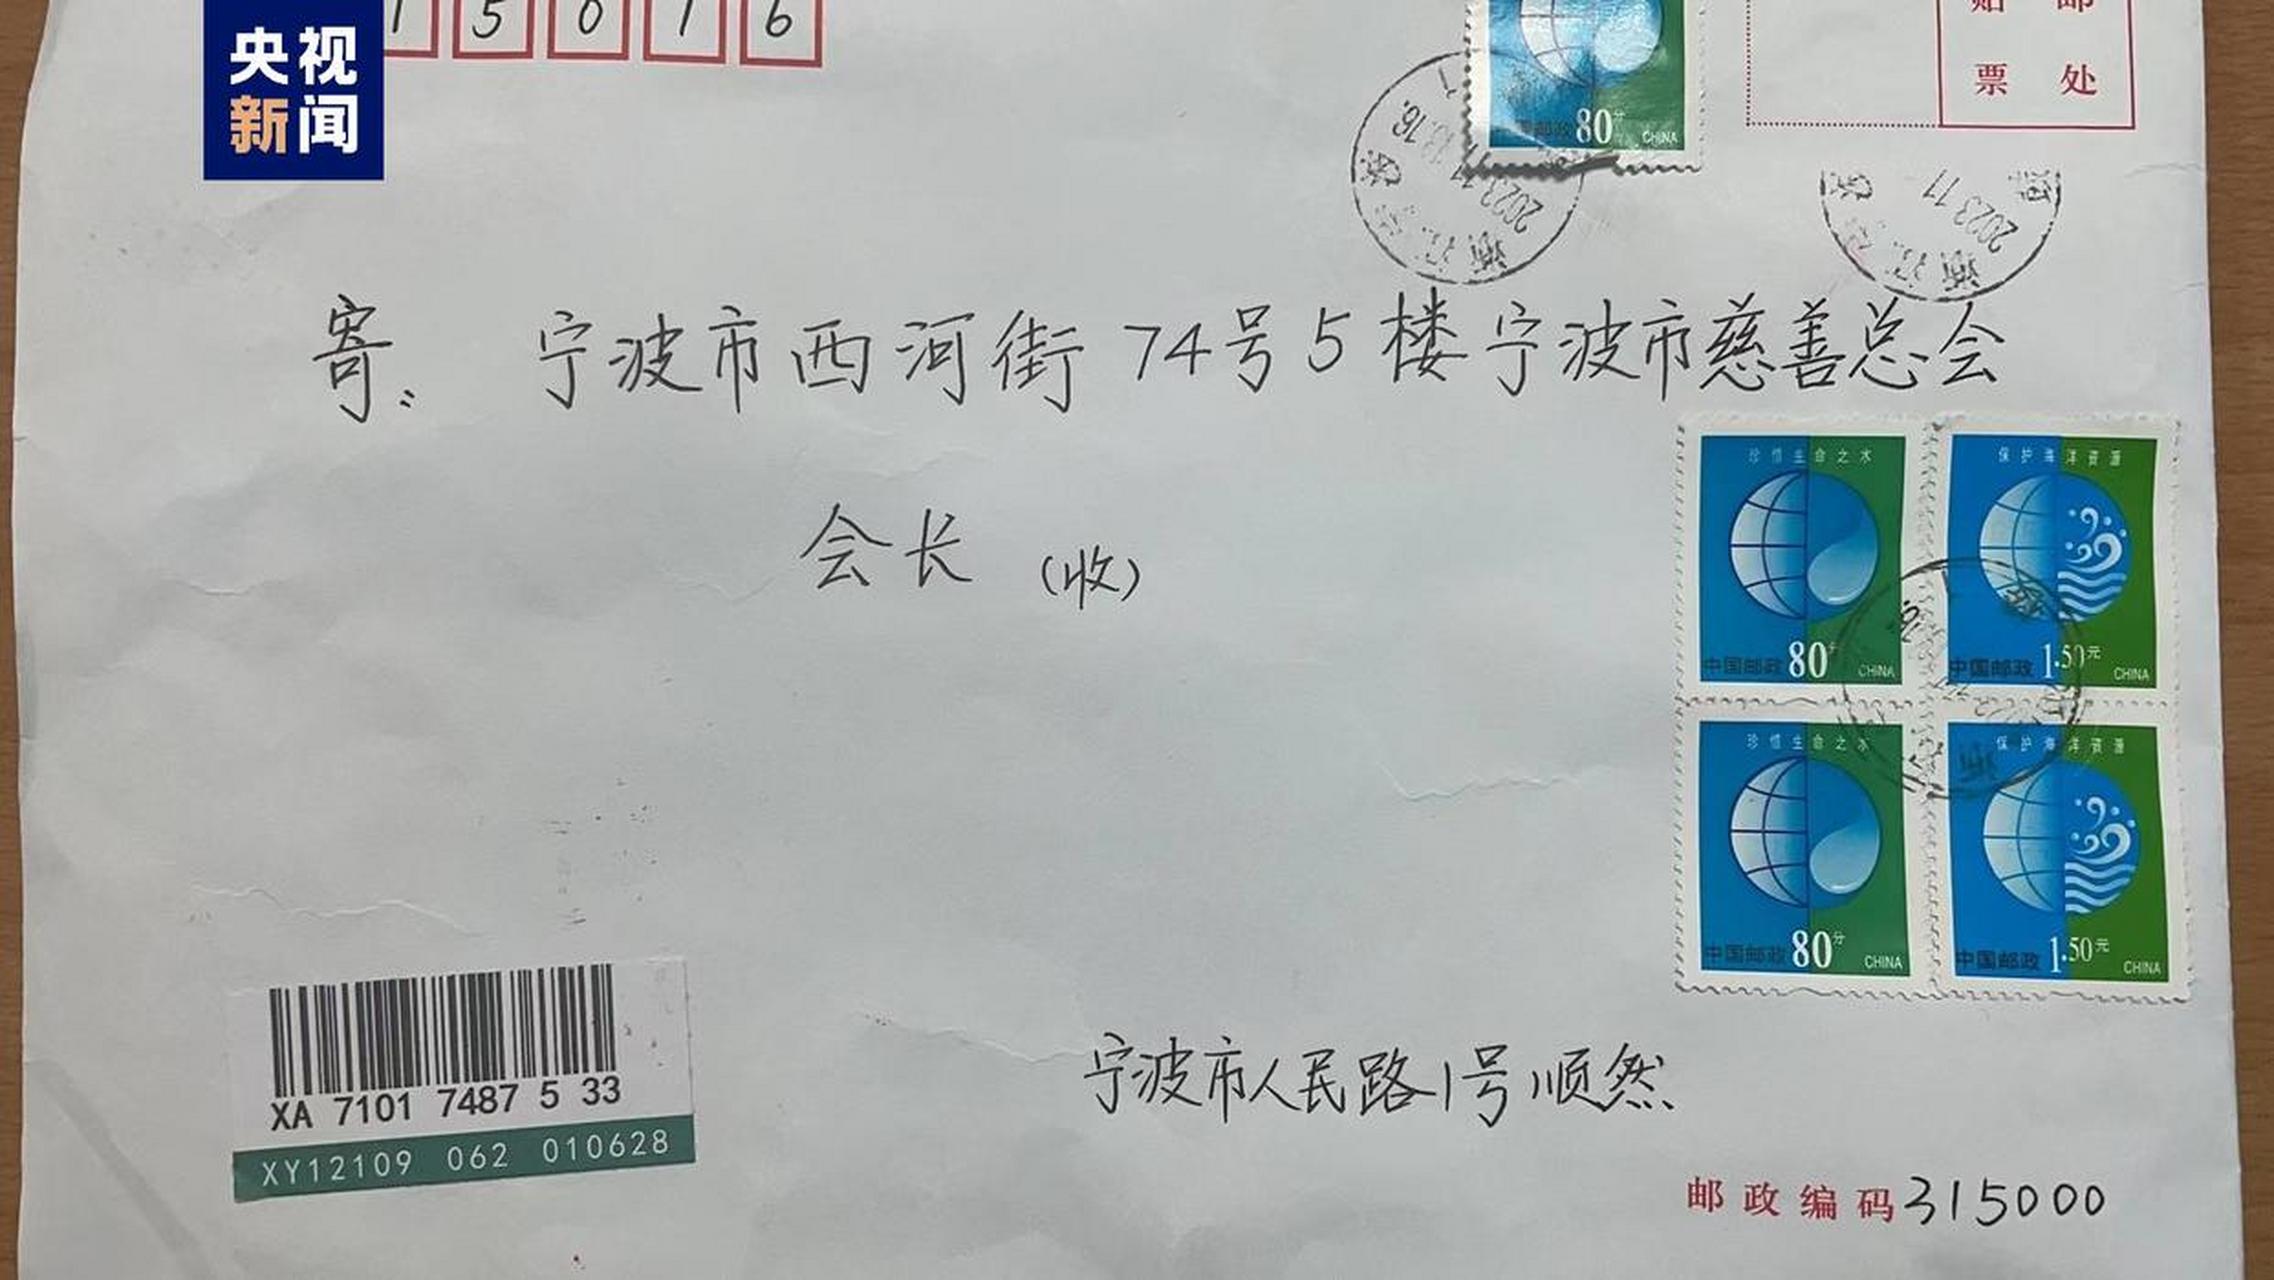 央视
新闻
15016
贴邮
票处
80分
CHINA
2023.11.13.16.
浙江
2023.11
浙江
寄:宁波市西河街74号5楼宁波市慈善总会
会长(收)
珍惜生命之水
中国邮政80分CHINA
保护海洋资源
中国邮政1.50元CHINA
珍惜生命之水
中国邮政80分CHINA
保护海洋资源
中国邮政1.50元CHINA
XA 7101 7487 5 33
XY12109 062 010628
宁波市人民路1号顺然
邮政编码315000